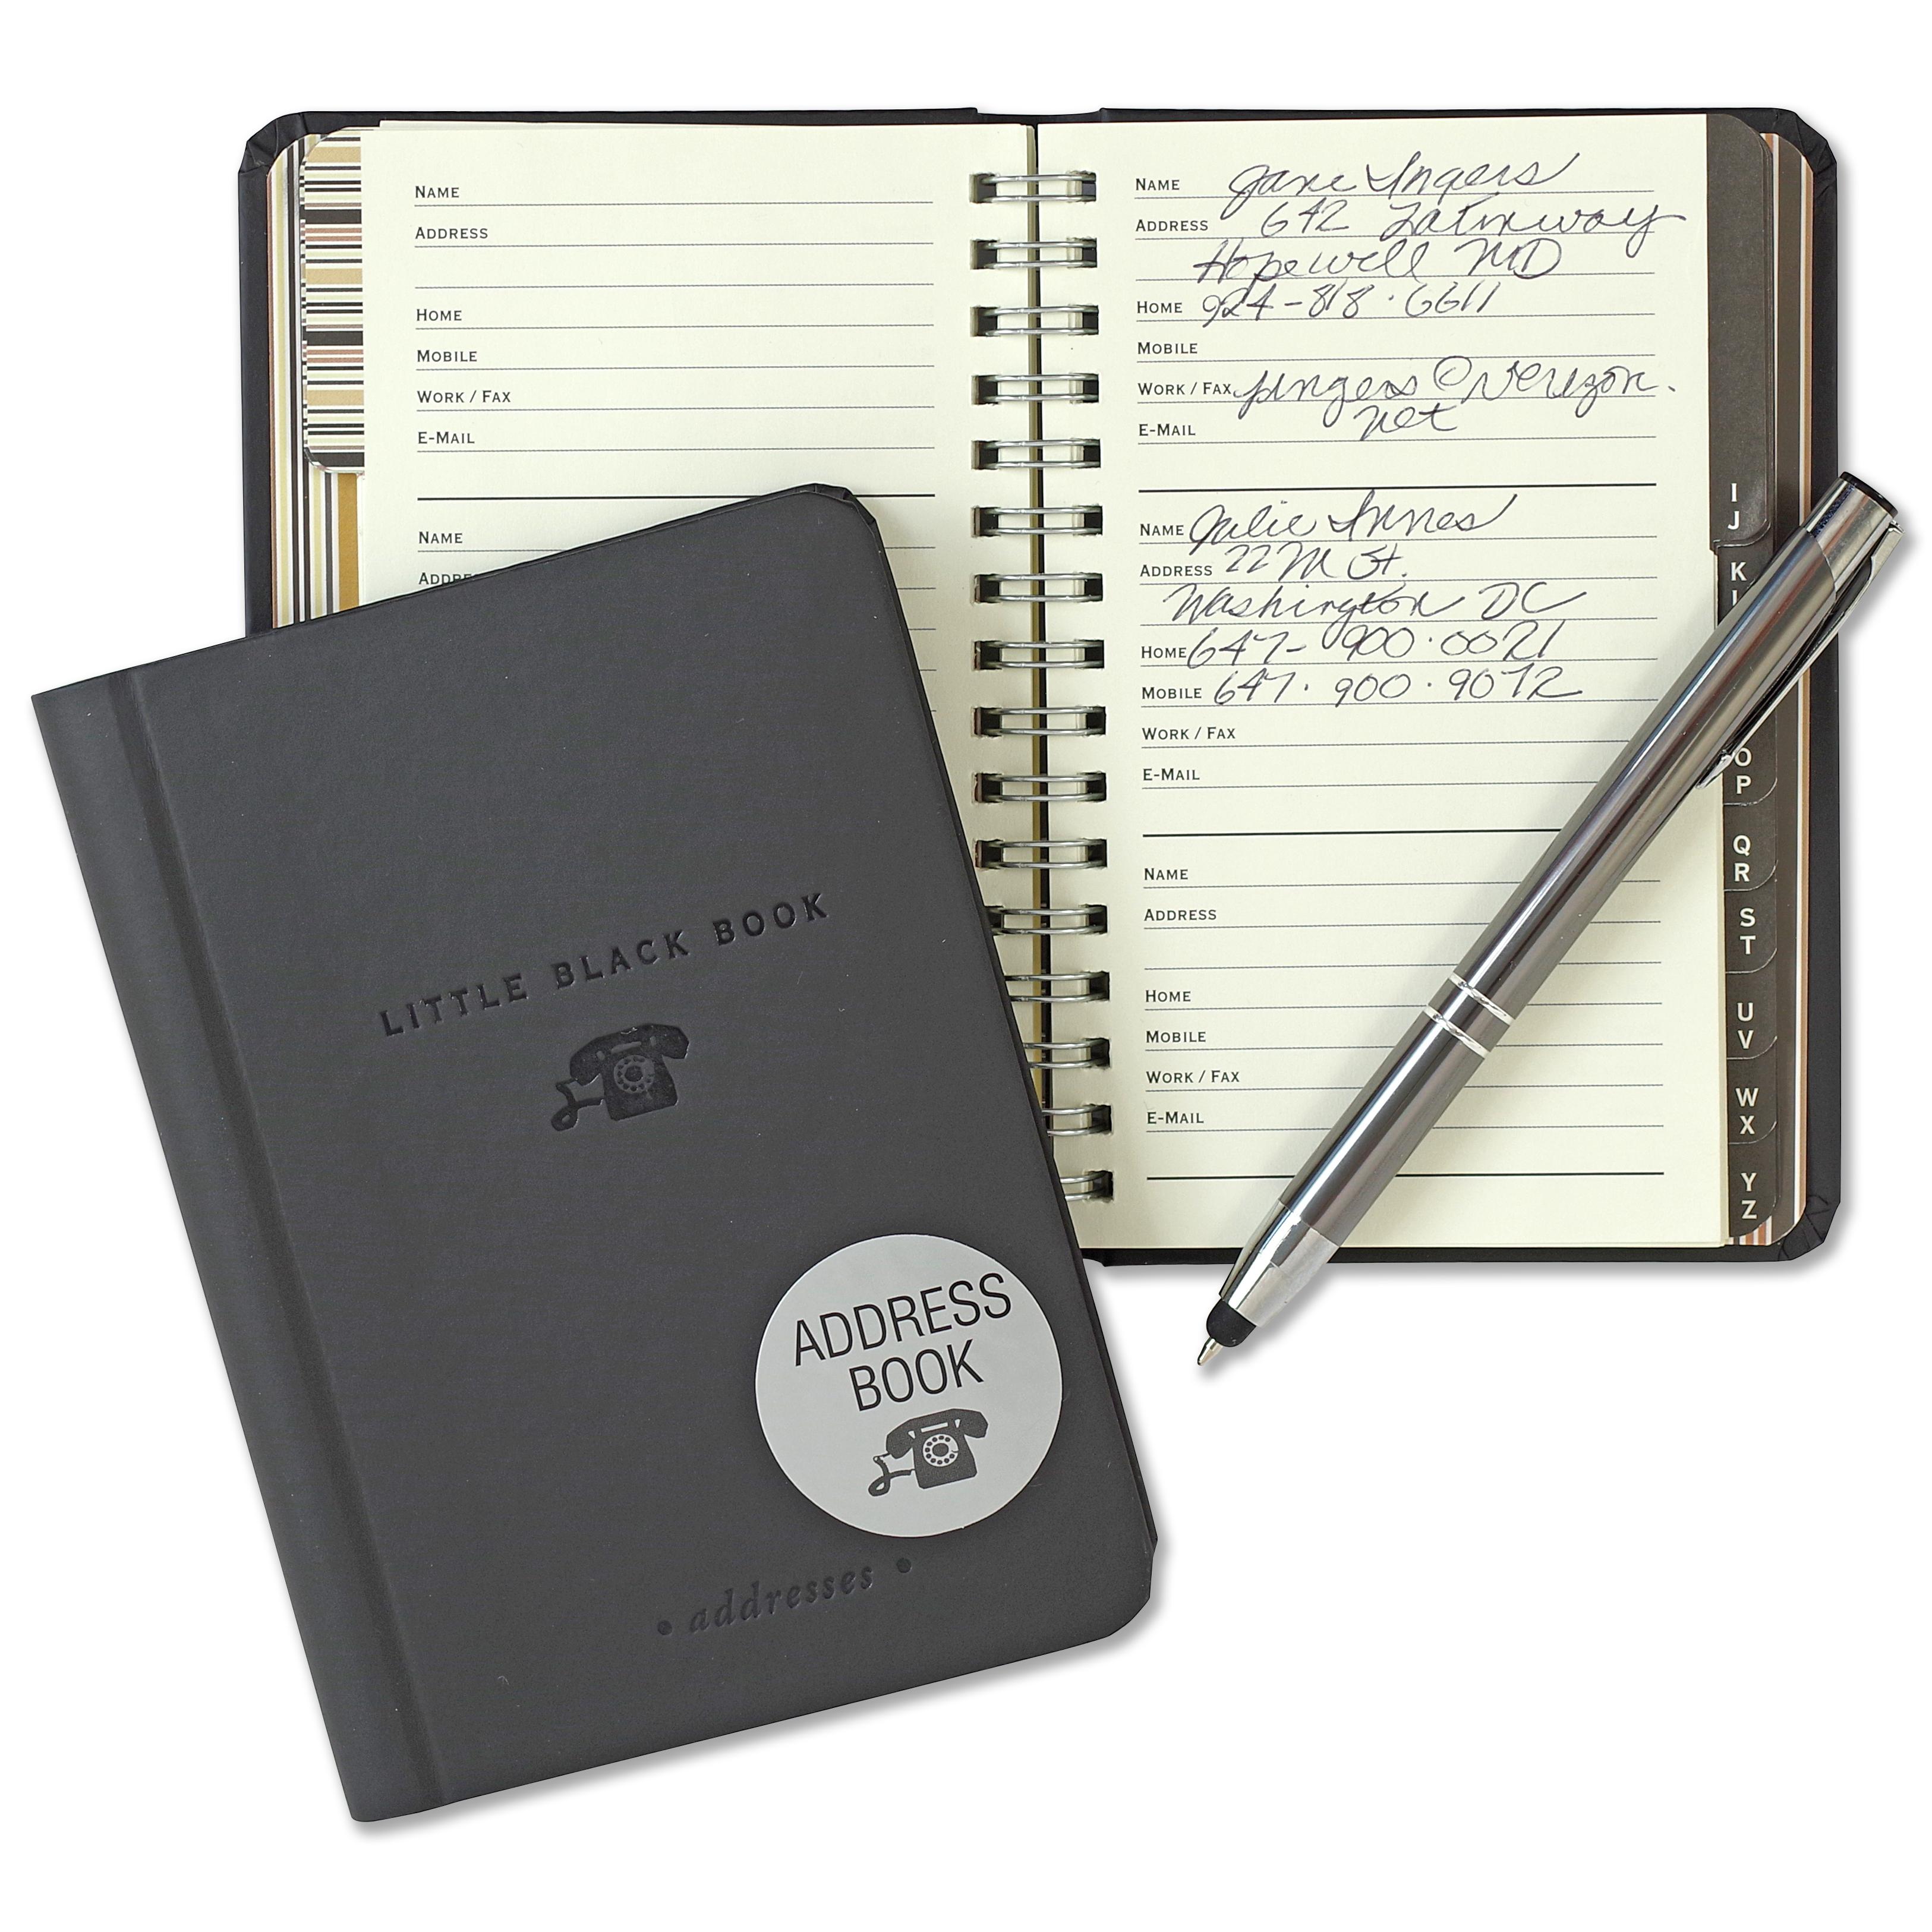 NAME
ADDRESS
HOME
MOBILE
WORK / FAX
E-MAIL
NAME
NAME Jane Ingers
ADDRESS 642
Hopewell MD
HOME 924-818·6611
MOBILE
WORK / FAX jingers@verizon.
net
E-MAIL
NAME Julie Innes
ADDRESS 22 M St.
Washington DC
HOME 647-900·0021
MOBILE 647·900·9072
WORK / FAX
E-MAIL
NAME
ADDRESS
HOME
MOBILE
WORK / FAX
E-MAIL
I
J
K
O
P
Q
R
S
T
U
V
W
X
Y
Z
LITTLE BLACK BOOK
ADDRESS
BOOK
• addresses •